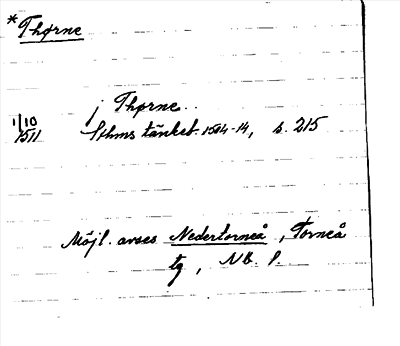 *Thørne
j Thørne.
1/10 1511 Sthms tänkeb. 1504-14, s. 215
Möjl. avses Nedertorneå, Torneå
tg, Nb. l.